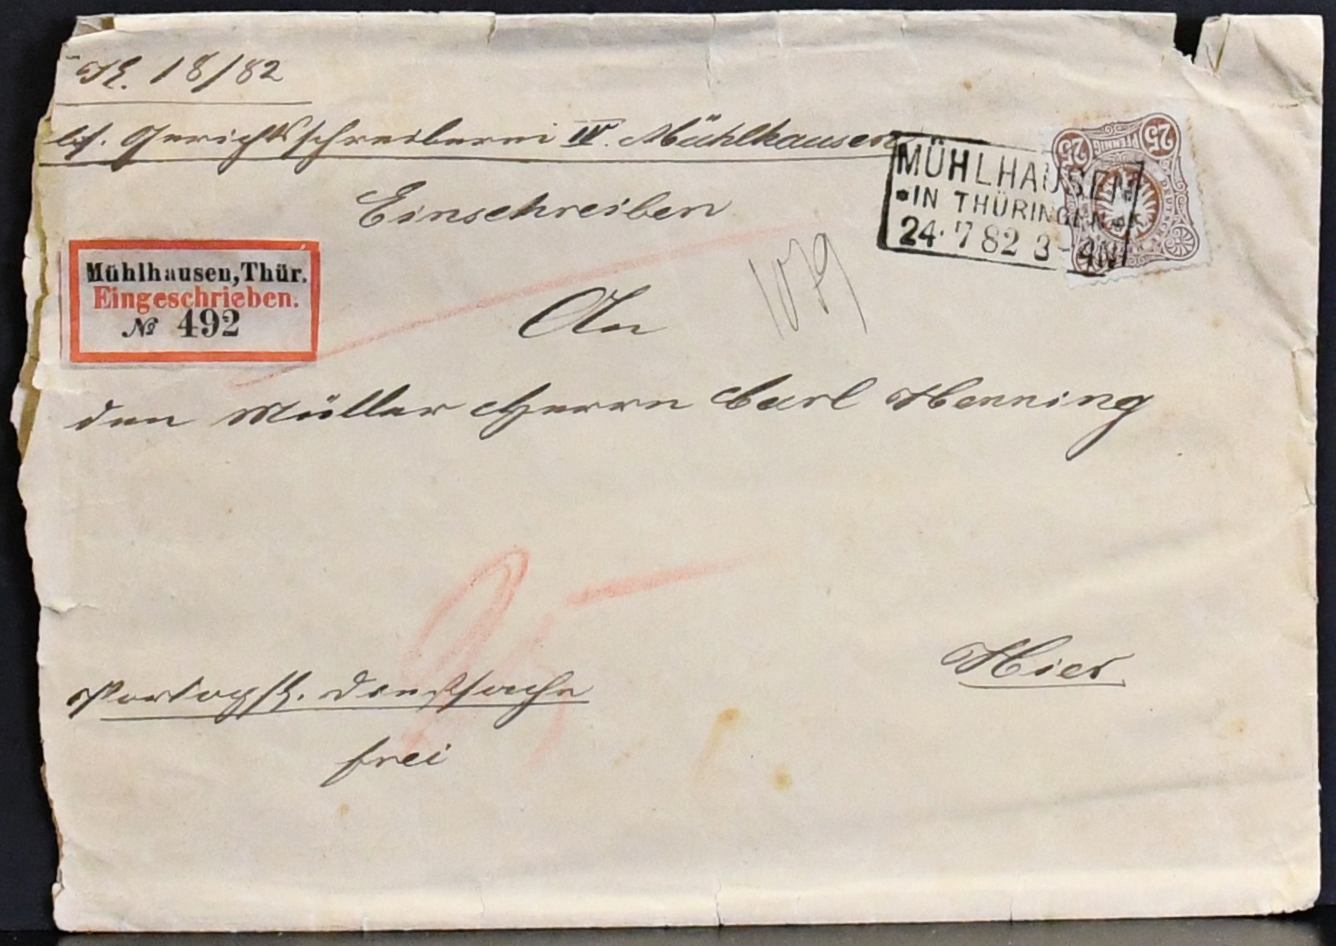 K. 18/82
Gerichtsschreiberei IV. Mühlhausen
MÜHLHAUSEN
*IN THÜRINGEN*
24. 7 82 3-4N
25
PFENNIG
25
Einschreiben
Mühlhausen, Thür.
Eingeschrieben.
№ 492
1079
An
den Müller Herrn Carl Henning
25
Hier
Portopfl. Dienstsache
frei